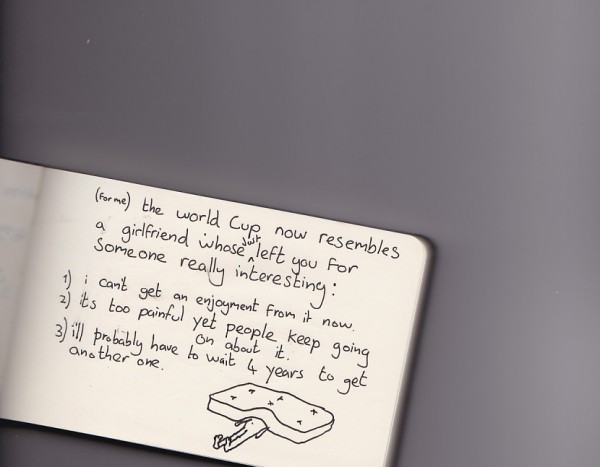 (for me) the world Cup now resembles
a girlfriend whose just left you for
someone really interesting:
1) i can't get an enjoyment from it now.
2) its too painful yet people keep going
on about it.
3) i'll probably have to wait 4 years to get
another one.